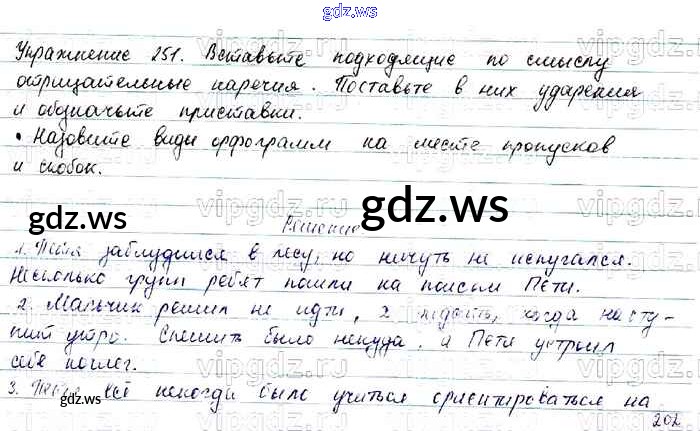 gdz.ws
Упражнение 251. Вставьте подходящие по смыслу
отрицательные наречия. Поставьте в них ударения
и обозначьте приставки.
• Назовите виды орфограмм на месте пропусков
и скобок.
gdz.ws gdz.ws
Решение
1. Петя заблудился в лесу, но ничуть не испугался.
Несколько групп ребят пошли на поиски Пети.
2. Мальчик решил не идти, а подождать, когда насту-
пит утро. Спешить было некуда, и Петя устроил
себе ночлег.
3. Пете всё некогда было учиться ориентироваться на
gdz.ws
202